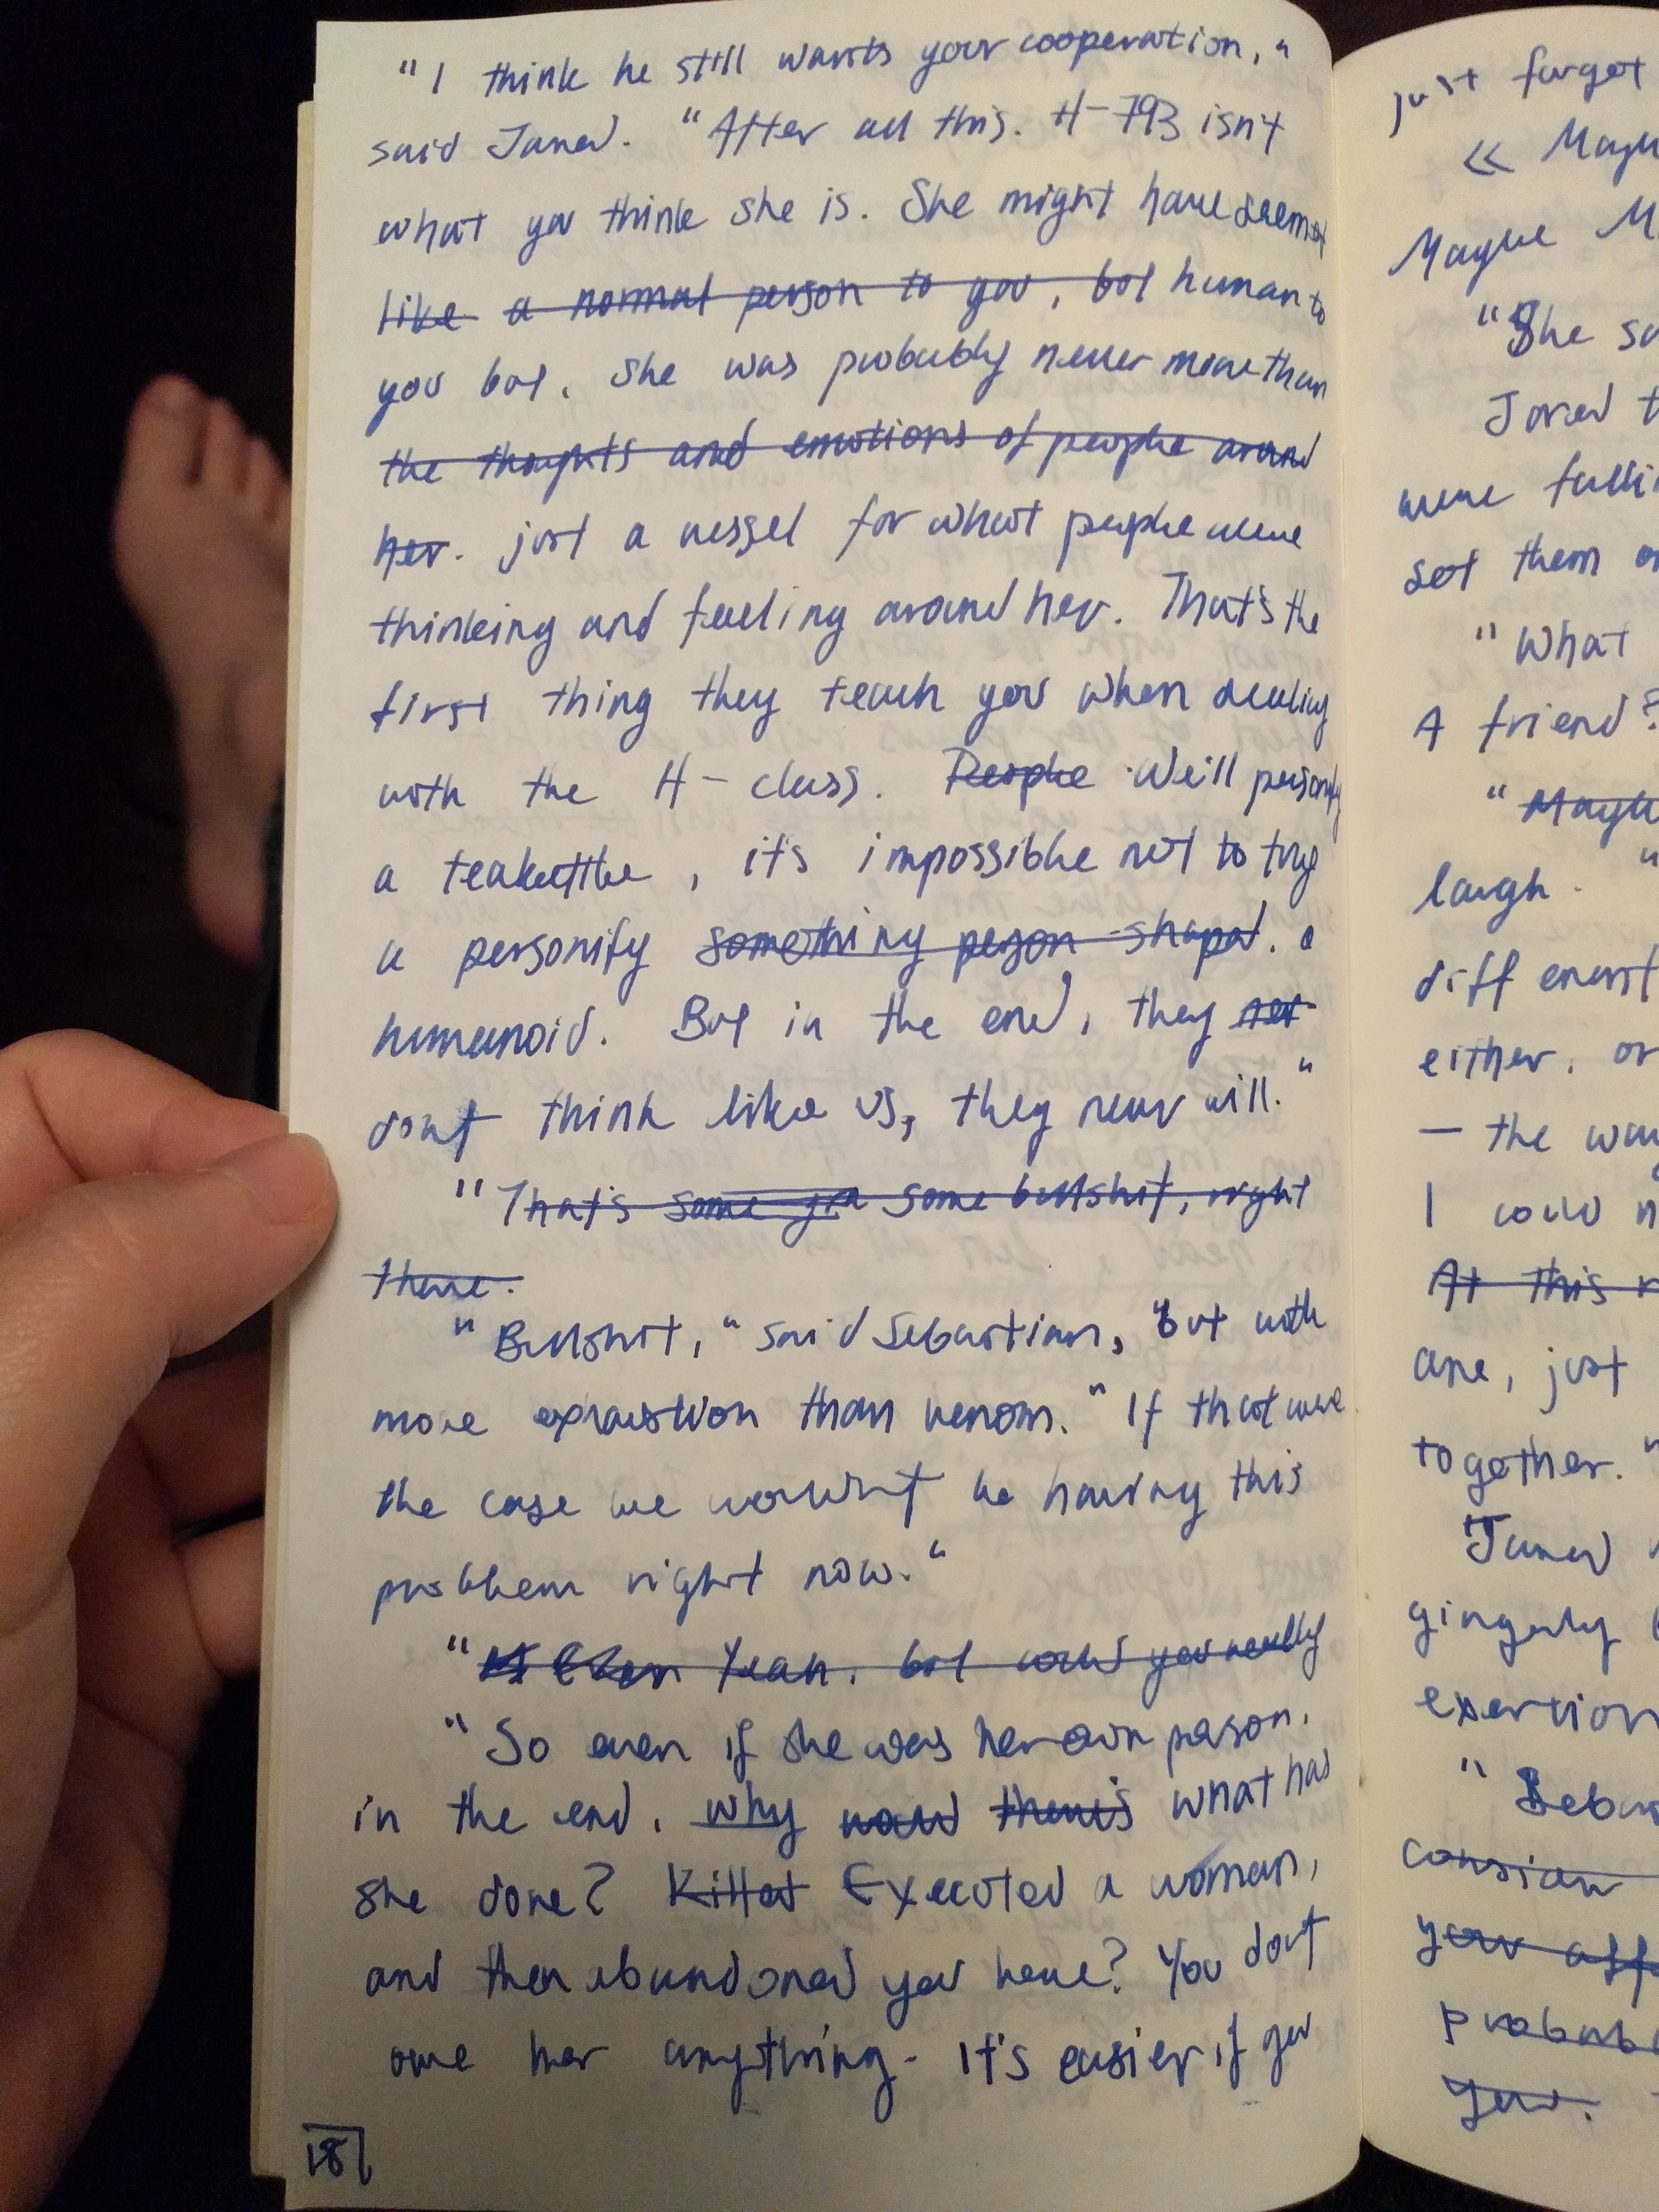 "I think he still wants your cooperation,"
said Jared. "After all this. H-793 isn't
what you think she is. She might have seemed
like a normal person to you, but human to
you but, she was probably never more than
the thoughts and emotions of people around
her. just a vessel for what people were
thinking and feeling around her. That's the
first thing they teach you when dealing
with the H-class. People We'll personify
a teakettle, it's impossible not to try
a personify something person-shaped. a
humanoid. But in the end, they
don't think like us, they never will."
"That's some some bullshit, right
there.
"Bullshit," said Sebastian, but with
more exhaustion than venom. "If that were
the case we wouldn't be having this
problem right now."
" Yeah, but could you really
"So even if she was her own person,
in the end, why would there's what has
she done? Killed Executed a woman,
and then abandoned you here? You don't
owe her anything. It's easier if you
181
just forget
« Mayb
Maybe M
"She sa
Jared t
were falli
set them o
"What
A friend?
"Mayb
laugh. "
different
either, or
— the way
I could n
At this r
are, just
together. "
Jared
gingerly
exertion
"Sebas
you aff
probab
you.